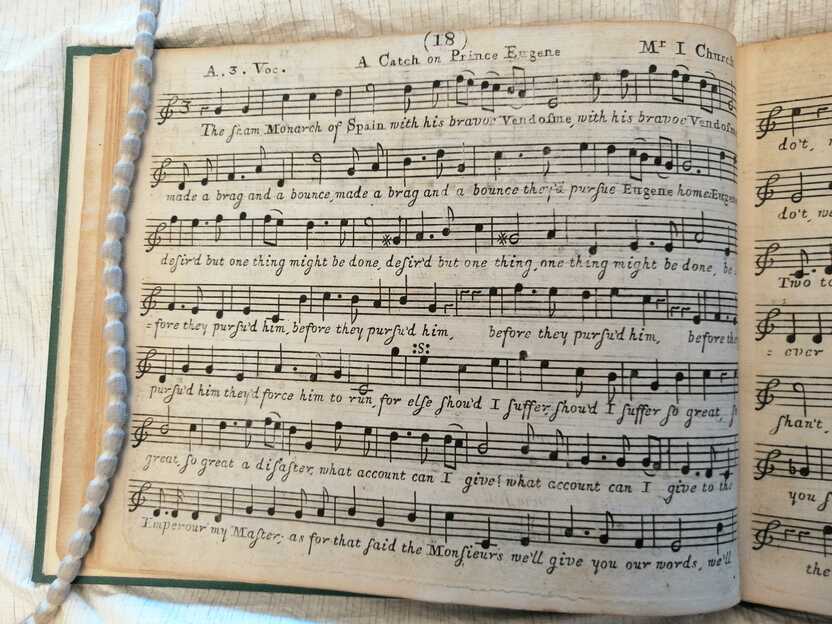 (18)
A. 3. Voc. A Catch on Prince Eugene Mr I Church
The ſham Monarch of Spain with his bravoe Vendoſme, with his bravoe Vendoſm
made a brag and a bounce, made a brag and a bounce they'd purſue Eugene home: Eugene
deſir'd but one thing might be done, deſir'd but one thing, one thing might be done, be
=fore they purſu'd him, before they purſu'd him, before they purſu'd him, before the
purſu'd him they'd force him to run, for elſe ſhou'd I ſuffer, ſhou'd I ſuffer ſo great,
great, ſo great a diſaſter, what account can I give? what account can I give to the
Emperour my Maſter; as for that ſaid the Monſieurs we'll give you our words, we'll
do't,
do't, we
Two to
= ever
ſhan't,
you ſ
the